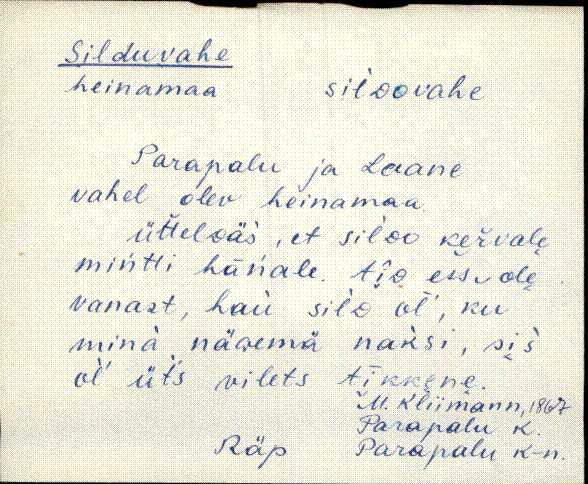 Silduvahe
heinamaa silᴅovahe
Parapalu ja Laane
vahel olev heinamaa.
üttelᴅäs, et silᴅo keŕvale
mińtti hańale. tio
vanast, haú silᴅ oĺ, ku
minà näɢemä naksi, sis
oĺ üt́s vilets tikkene.
M. Kliimann, 1867
Parapalu k.
Räp Parapalu k-n.